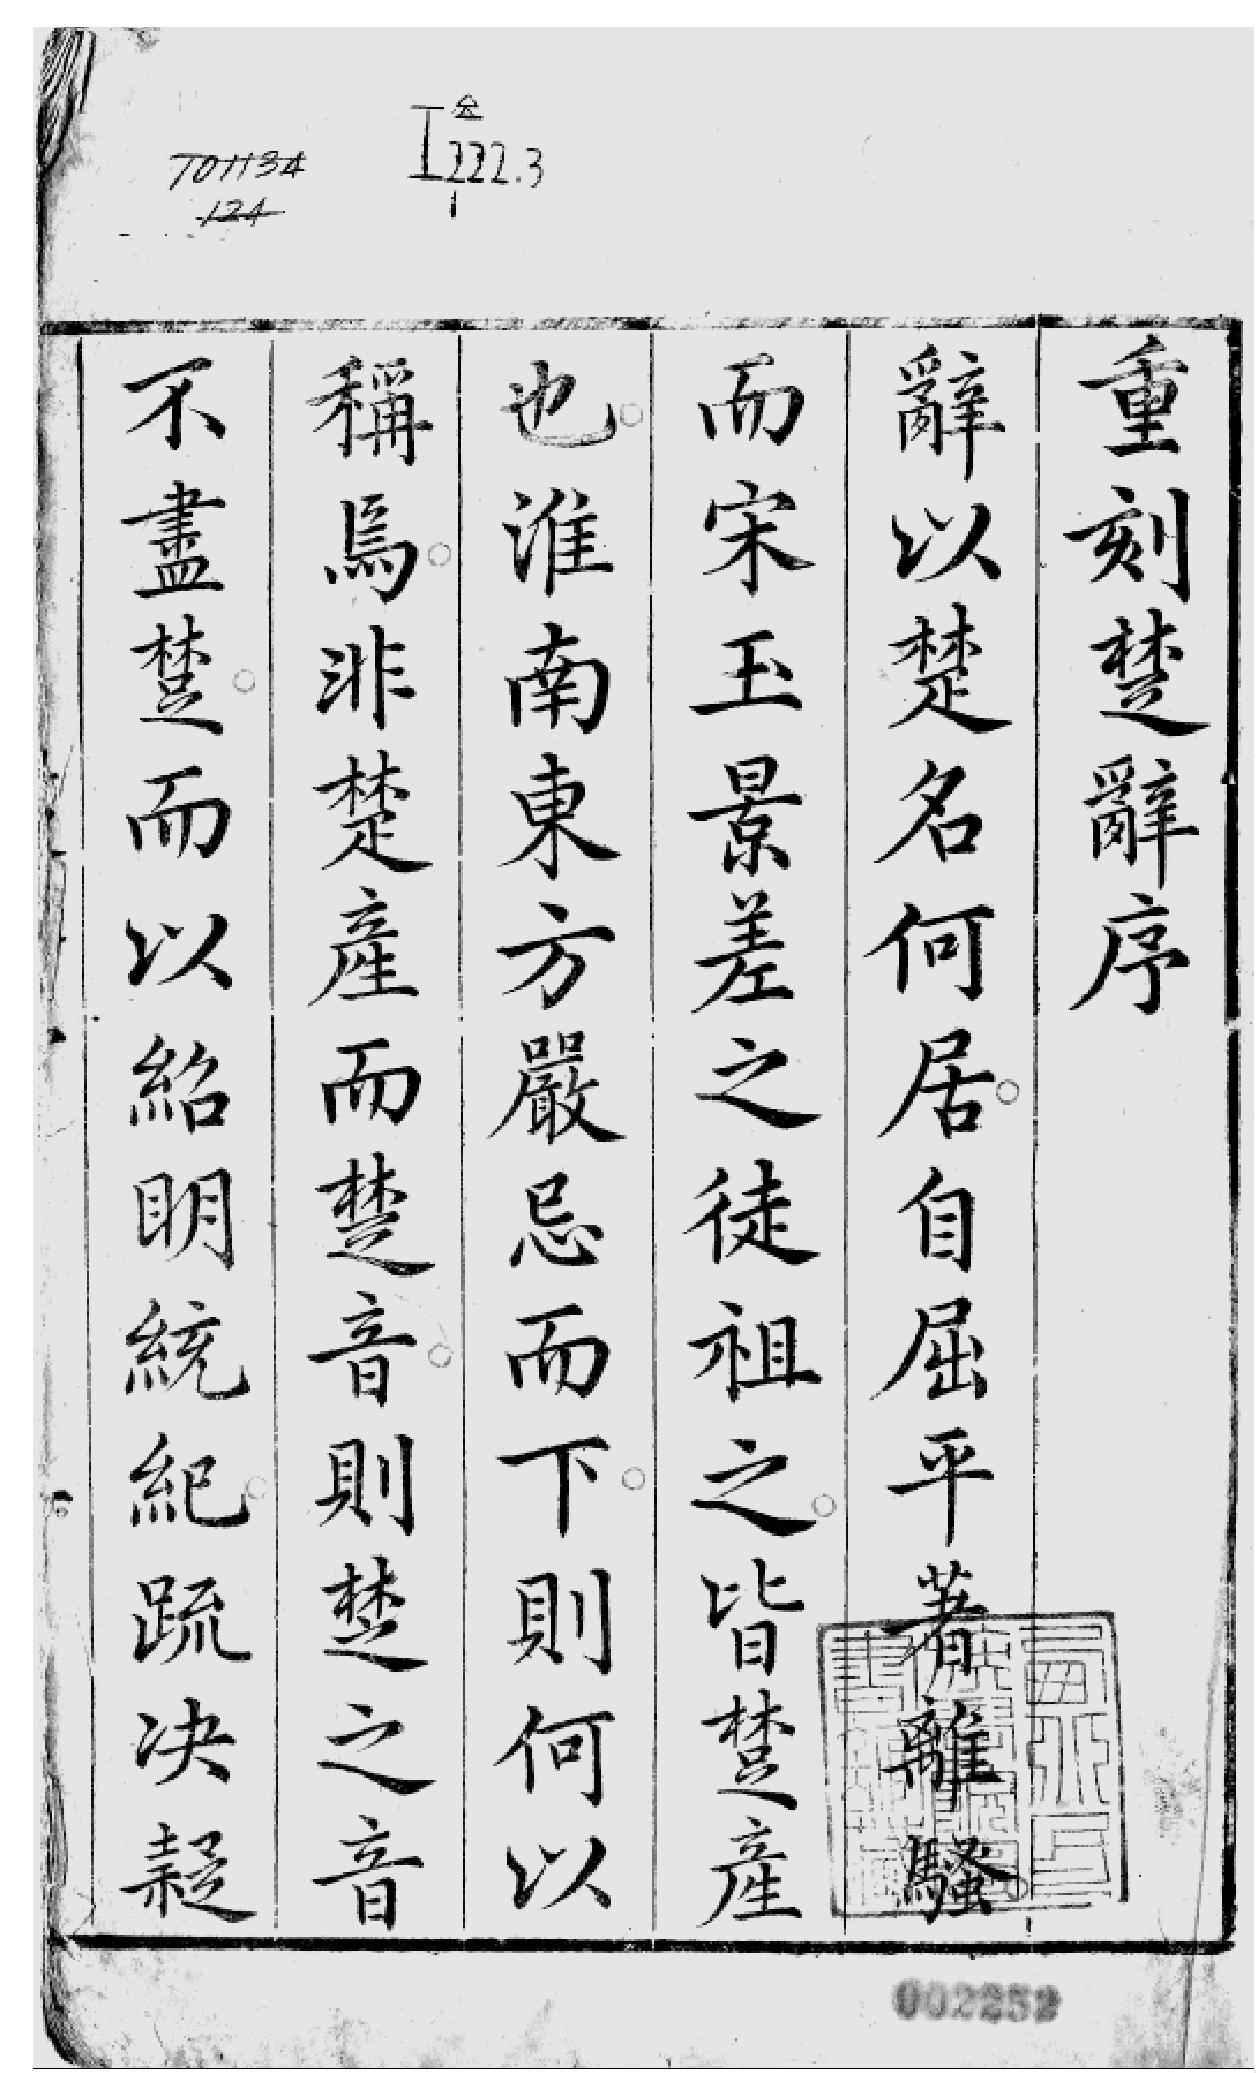 T01134
124
I222.3
1
重刻楚辭序
辭以楚名何居自屈平著離騷
而宋玉景差之徒祖之皆楚產
也淮南東方嚴忌而下則何以
稱焉非楚產而楚音則楚之音
不盡楚而以紹明統紀䟽决疑
002252